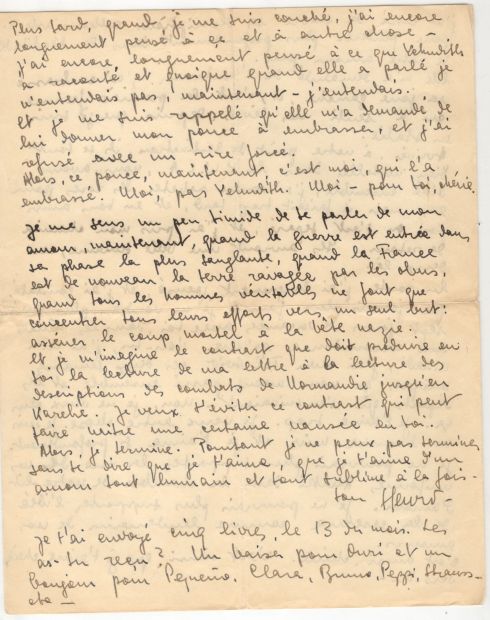 Plus tard, quand je me suis couché, j'ai encore
longuement pensé à ça et à autre chose –
J'ai encore longuement pensé à ce que Yehudith
a raconté et quoique quand elle a parlé je
n'entendais pas, maintenant – j'entendais.
Et je me suis rappelé qu'elle m'a demandé de
lui donner mon pouce à embrasser, et j'ai
refusé avec un rire forcé.
Alors, ce pouce, maintenant, c'est moi, qui l'a
embrassé. Moi, pas Yehudith. Moi – pour toi, chérie.
Je me sens un peu timide de te parler de mon
amour, maintenant, quand la guerre est entrée dans
sa phase la plus sanglante, quand la France
est de nouveau la terre ravagée par les obus,
quand tous les hommes véritables ne font que
concentrer tous leurs efforts vers un seul but:
asséner le coup mortel à la bête nazie.
Et je m'imagine le contraste que doit produire en
toi la lecture de ma lettre à la lecture des
descriptions des combats de Normandie jusqu'en
Karelie. Je veux t'éviter ce contraste qui peut
faire naître une certaine nausée en toi.
Alors, je termine. Pourtant je ne peux pas terminer
sans te dire que je t'aime, que je t'aime d'un
amour tout humain et tout sublime à la fois.
ton Henri –
Je t'ai envoyé cinq livres, le 13 du mois. Les
as-tu reçu? Un baiser pour Ouri et un
bonjour pour Pequeño, Clara, Bruno, Peppi, Strauss –
etc –